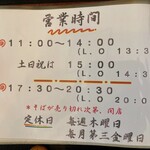 営業時間
①11:00～14:00
(L.O 13:3
土日祝は 15:00
(L.O 14:3
②17:30～20:30
(L.O 20:0
※そばが売り切れ次第、閉店
定休日 毎週木曜日
毎月第三金曜日